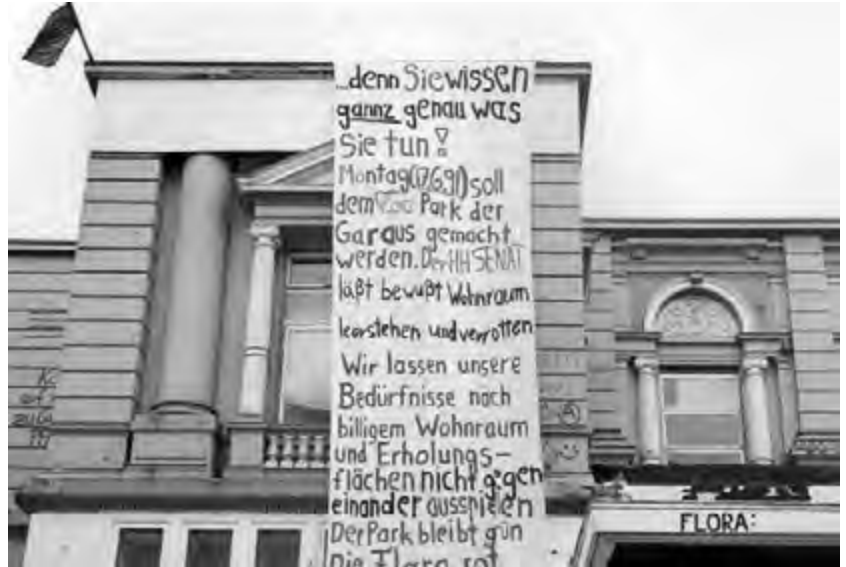 ...denn Sie wissen
gannz genau was
Sie tun!
Montag(17.6.91) soll
dem Park der
Garaus gemacht
werden. Der HH SENAT
läßt bewußt Wohnraum
leerstehen und verrotten
Wir lassen unsere
Bedürfnisse nach
billigem Wohnraum
und Erholungs-
flächen nicht gegen
einander ausspielen
Der Park bleibt grün
Die Flora rot
FLORA: